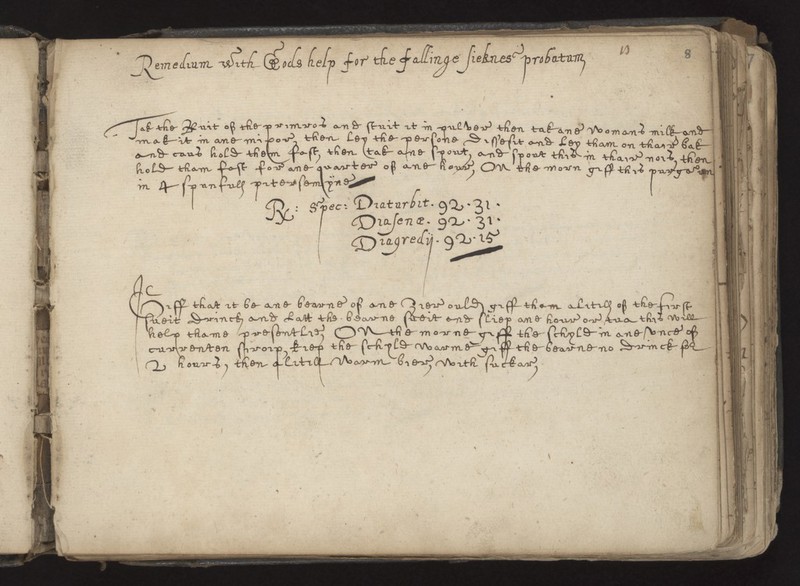 Remedium with Gods help for the fallinge sieknes probatum
8
Tak the Ruit of the primros and stuit it in pulver then tak ane womans milk and
mak it in ane mixor, then ley the persone dissesit and ley tham on thair bak
and caus hold them fast, then tak ane spout, and spout this in thair nois, then
hold tham fast for ane quarter of ane hour, On the morn giff this purgation
in 4 spunfull pitersemyne
Rx: Spec: Diaturbit. 92. 31.
Diasenæ. 92. 31.
Diagredij. 92. 15
Giff that it be ane bearne of ane Zier ould, giff tham a litill of the first
sueit drinck and latt the bearne sueit and sliep ane hour or tua this will
help thame presentlie, ON the morne giff the schyld in ane unce of
currenten siroip, kiep the schyld warme giff the bearne no drinck for
2 hours, then a litill warm bier, with suckar,